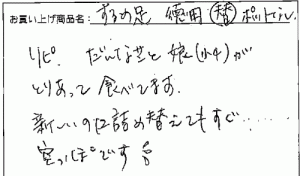 お買い上げ商品名: するめ足 徳用(替)ポットなし
リピ. だんな芝と娘(小4)が
とりあって食べてます.
新しいのに詰め替えてもすぐ……
空っぽです